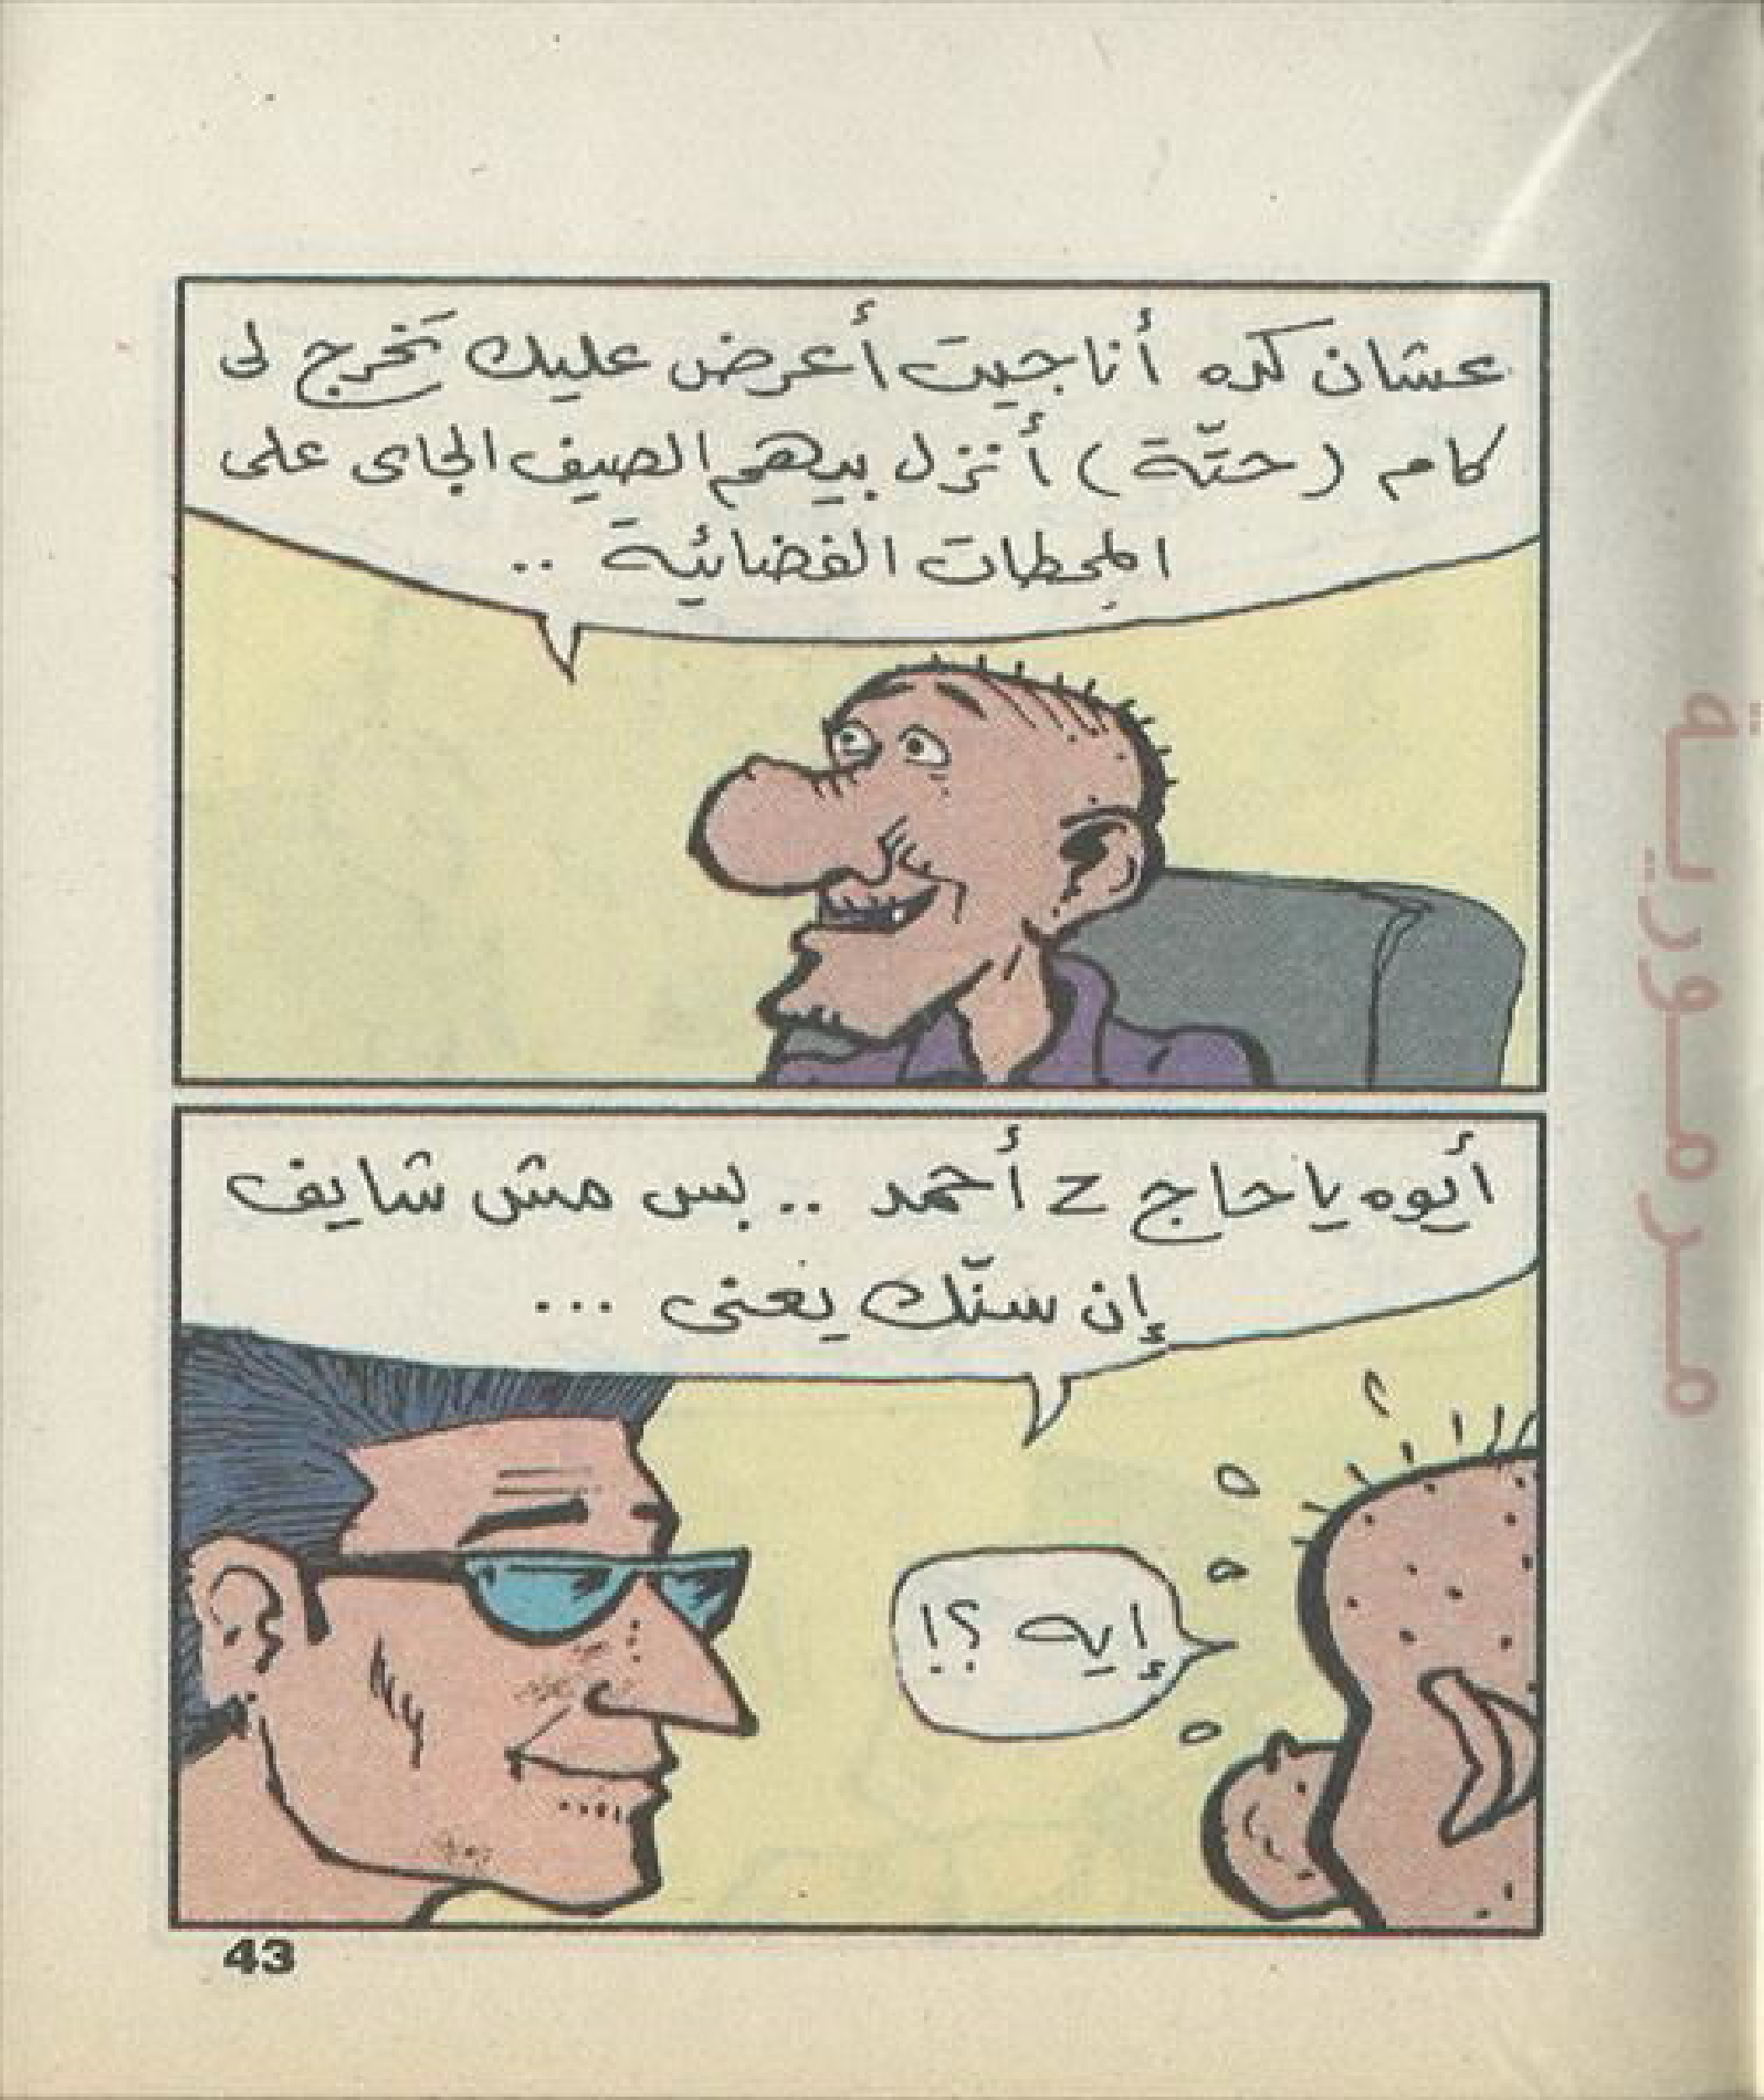 عشان كده أنا جيت أعرض عليك تَخرج لى
كام (حتّة) أنزل بيهم الصيف الجاى على
المحطات الفضائية ..
أيوه يا حاج z أحمد .. بس مش شايف
إن سنّك يعنى ...
إيه ؟!
43